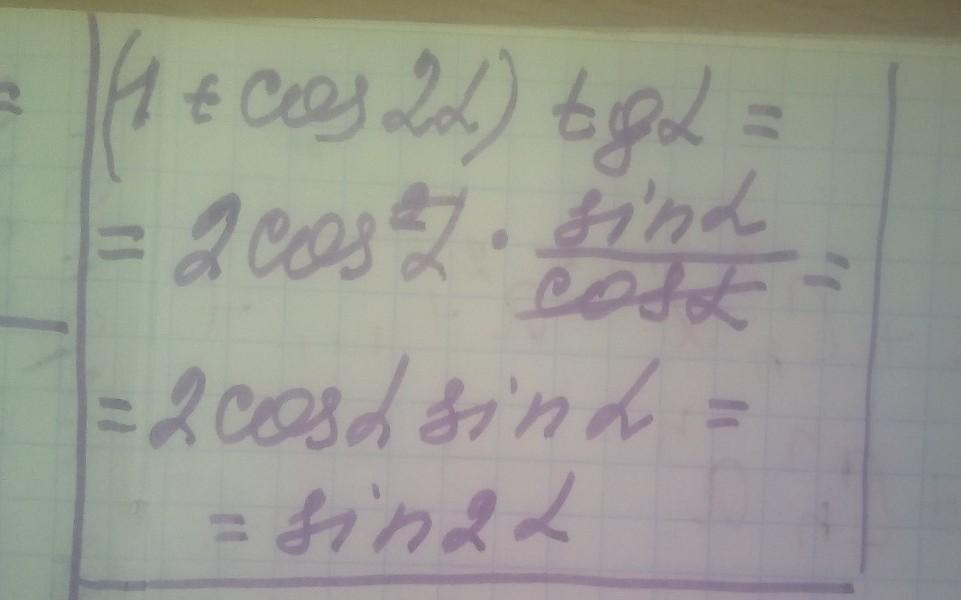 (1 + cos 2α) tgα =
= 2cos²α · sinα / cosα =
= 2cosα sinα =
= sin2α